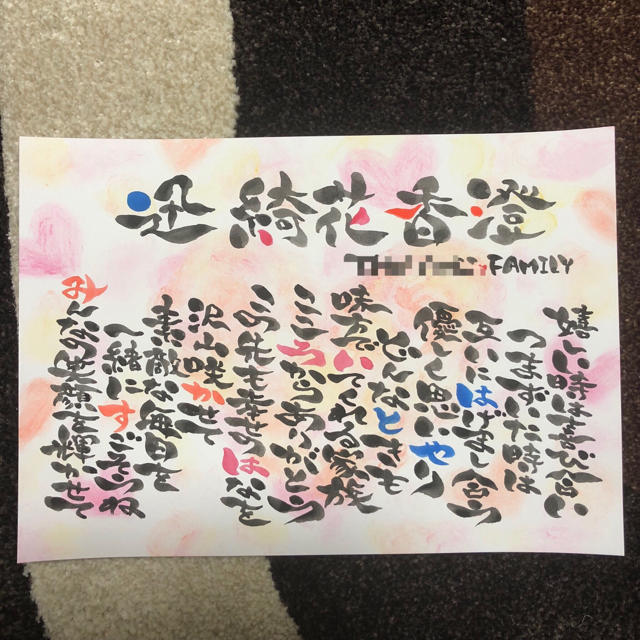 迅 綺花香澄
FAMILY
嬉しい時は喜び合い
つまずいた時は
互いにはげまし合う
優しく思いやり
どんなときも
味方でいてくれる家族
こころからありがとう
この先も幸せのはなを
沢山咲かせて
素敵な毎日を
一緒にすごそうね
みんなの笑顔を輝かせて